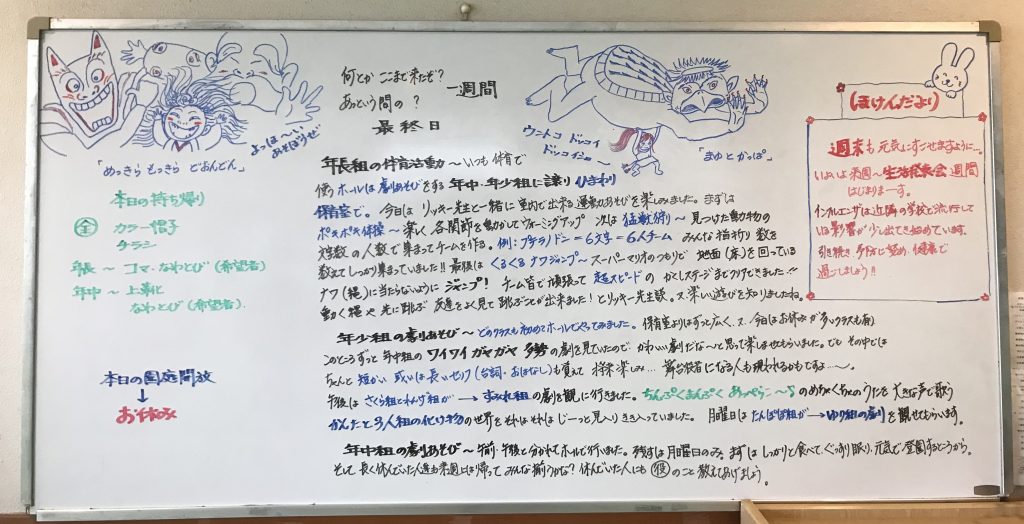 よっほ〜い
あそぼうぜ
「めっきら もっきら どおんどん」
何とか ここまで来たぞ?
あっという間の?
一週間
最終日
ウントコ ドッコイ
ドッコイショー
「まゆとかっぱ」
本日の持ち帰り
全 カラー帽子
チラシ
年長〜コマ・なわとび(希望者)
年中〜上靴
なわとび(希望者)
本日の園庭開放
↓
お休み
年長組の体育活動〜いつも体育で
使うホールは劇あそびをする年中・年少組に譲り ひまわり
保育室で。今日はリッキー先生と一緒に室内で出来る運動あそびを楽しみました。まずは
ポキポキ体操〜楽しく各関節を動かしてウォーミングアップ 次は猛獣狩り〜見つけた動物の
文字数の人数で集まってチームを作る。例:プテラノドン=6文字=6人チーム みんな指折り数を
数えてしっかり集まっていました!! 最後はくるくるナワジャンプ〜スーパーマリオのつもりで 地面(床)を回っている
ナワ(縄)に当たらないようにジャンプ! チーム皆で頑張って超スピードの かくしステージまでクリアできました!!
動く縄や先に跳ぶ友達をよく見て跳ぶことが出来ました!とリッキー先生談。又楽しい遊びを知りましたね。
年少組の劇あそび〜どのクラスも初めてホールでやってみました。保育室よりはずっと広く、又、今日はお休みが多いクラスも有り
このところずっと年中組のワイワイガヤガヤ多勢の劇を見ていたので かわいい劇だな〜と思って楽しませてもらいました。でもその中では
ちゃんと短かい或いは長いセリフ(台詞・おはなし)も覚えて 将来楽しみ… 舞台役者になる人も現われるかもですよ…〜。
午後はさくら組とれんげ組が→すみれ組の劇を観に行きます。ちんぷくまんぷく あっぺらこ〜♪のめちゃくちゃのうたを大きな声で歌う
かんたと3人組の化け物の世界をそれはそれはじーっと見入りきき入っていました。月曜日はたんぽぽ組が→ゆり組の劇を観せてもらいます。
年中組の劇あそび〜午前・午後と分かれてホールで行いました。残すは月曜日のみ。まずはしっかりと食べて、ぐっすり眠り、元気で登園するところから。
そして長く休んでいた人達も来週には帰ってみんな揃うかな?休んでいた人にも役のこと教えてあげましょう。
ほけんだより
週末も元気にすごせますように…。
いよいよ来週〜生活発表会週間
はじまりまーす。
インフルエンザは近隣の学校で流行して
は影響が少し出て来始めています。
引き続き予防に努め、健康で
過ごしましょう!!